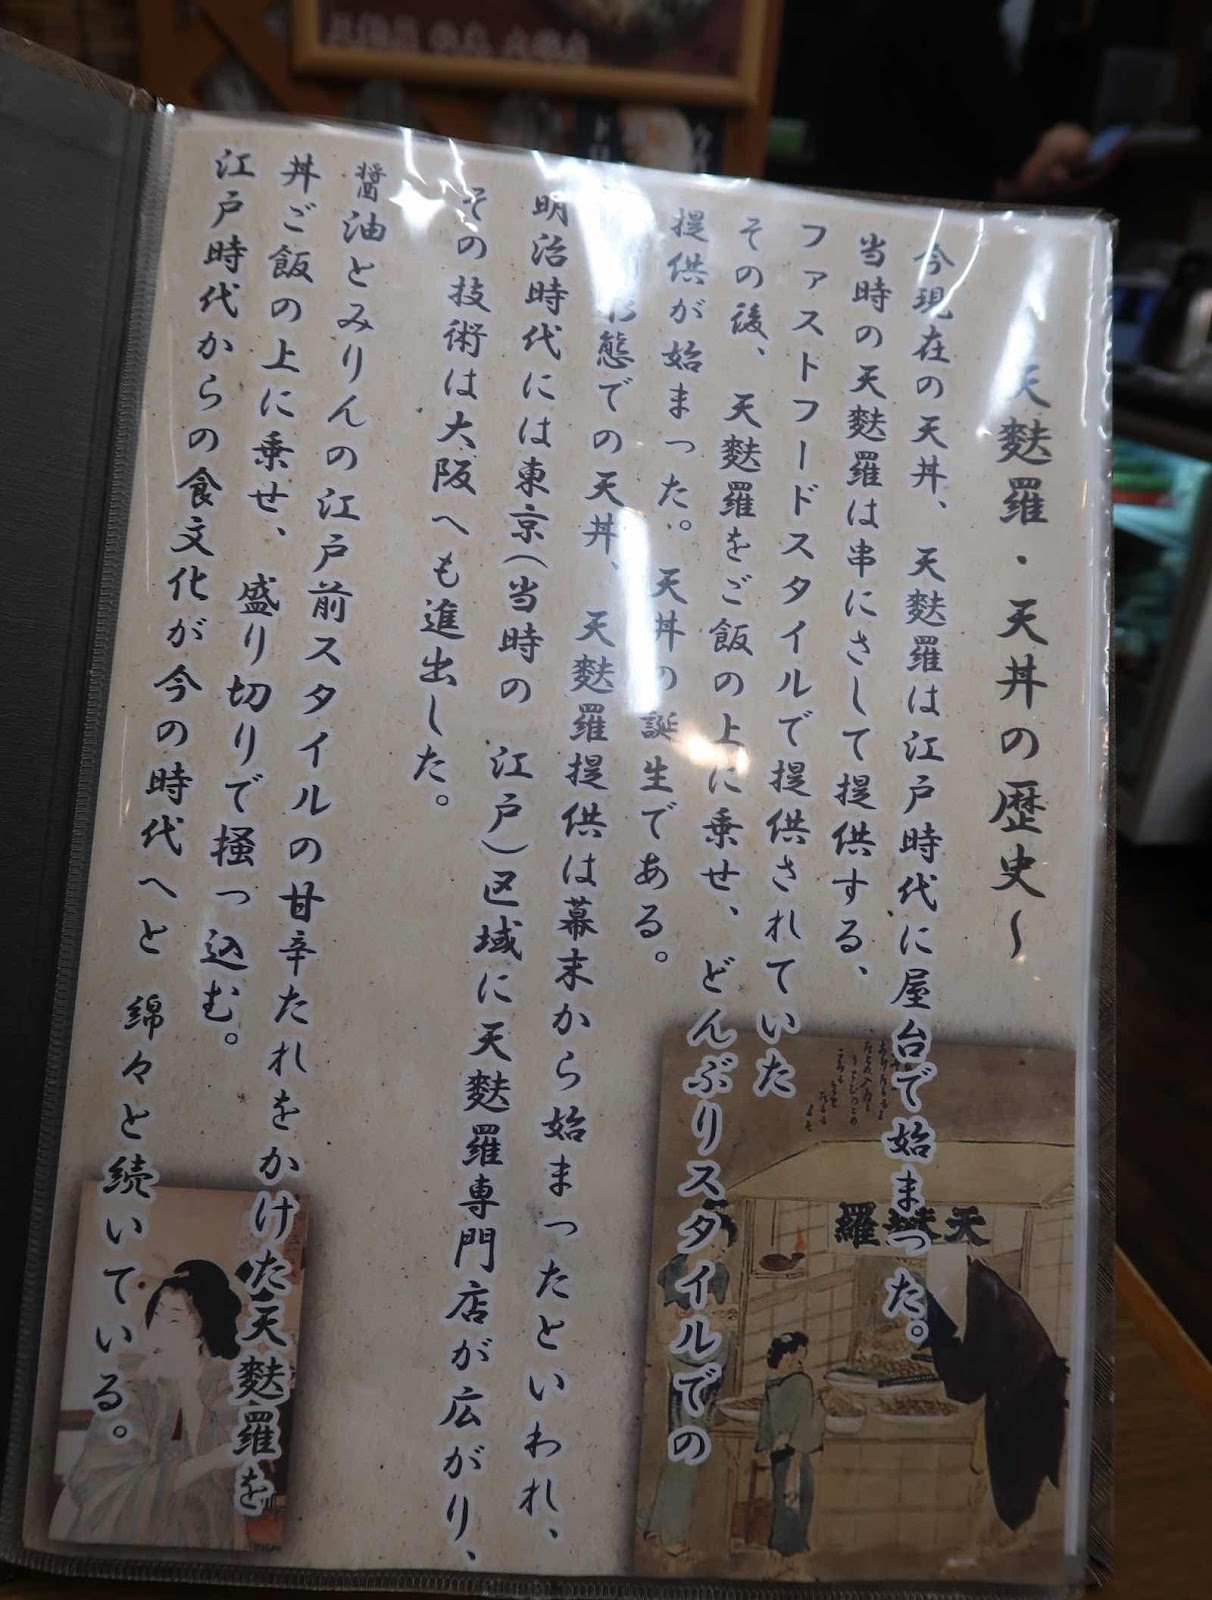 天麩羅・天丼の歴史〜
今現在の天丼、天麩羅は江戸時代に屋台で始まった。
当時の天麩羅は串にさして提供する、
ファストフードスタイルで提供されていた
その後、天麩羅をご飯の上に乗せ、どんぶりスタイルでの
提供が始まった。天丼の誕生である。
形態での天丼、天麩羅提供は幕末から始まったといわれ、
明治時代には東京(当時の 江戸)区域に天麩羅専門店が広がり、
その技術は大阪へも進出した。
醤油とみりんの江戸前スタイルの甘辛たれをかけた天麩羅を
丼ご飯の上に乗せ、盛り切りで掻っ込む。
江戸時代からの食文化が今の時代へと 綿々と続いている。
天麩羅